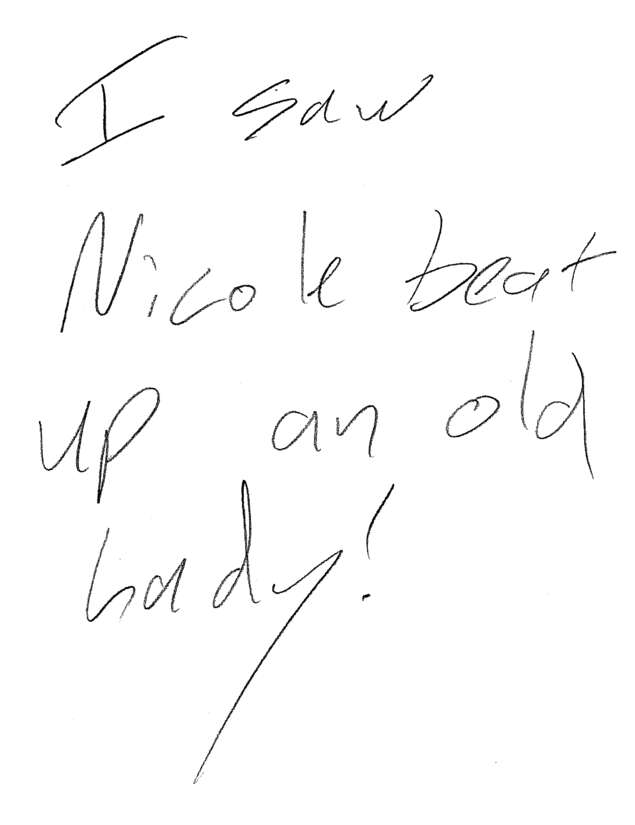 I saw
Nicole beat
up an old
lady!